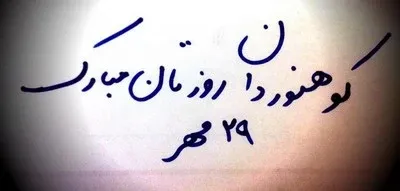 کوهنوردان روزتان مبارک
۲۹ مهر